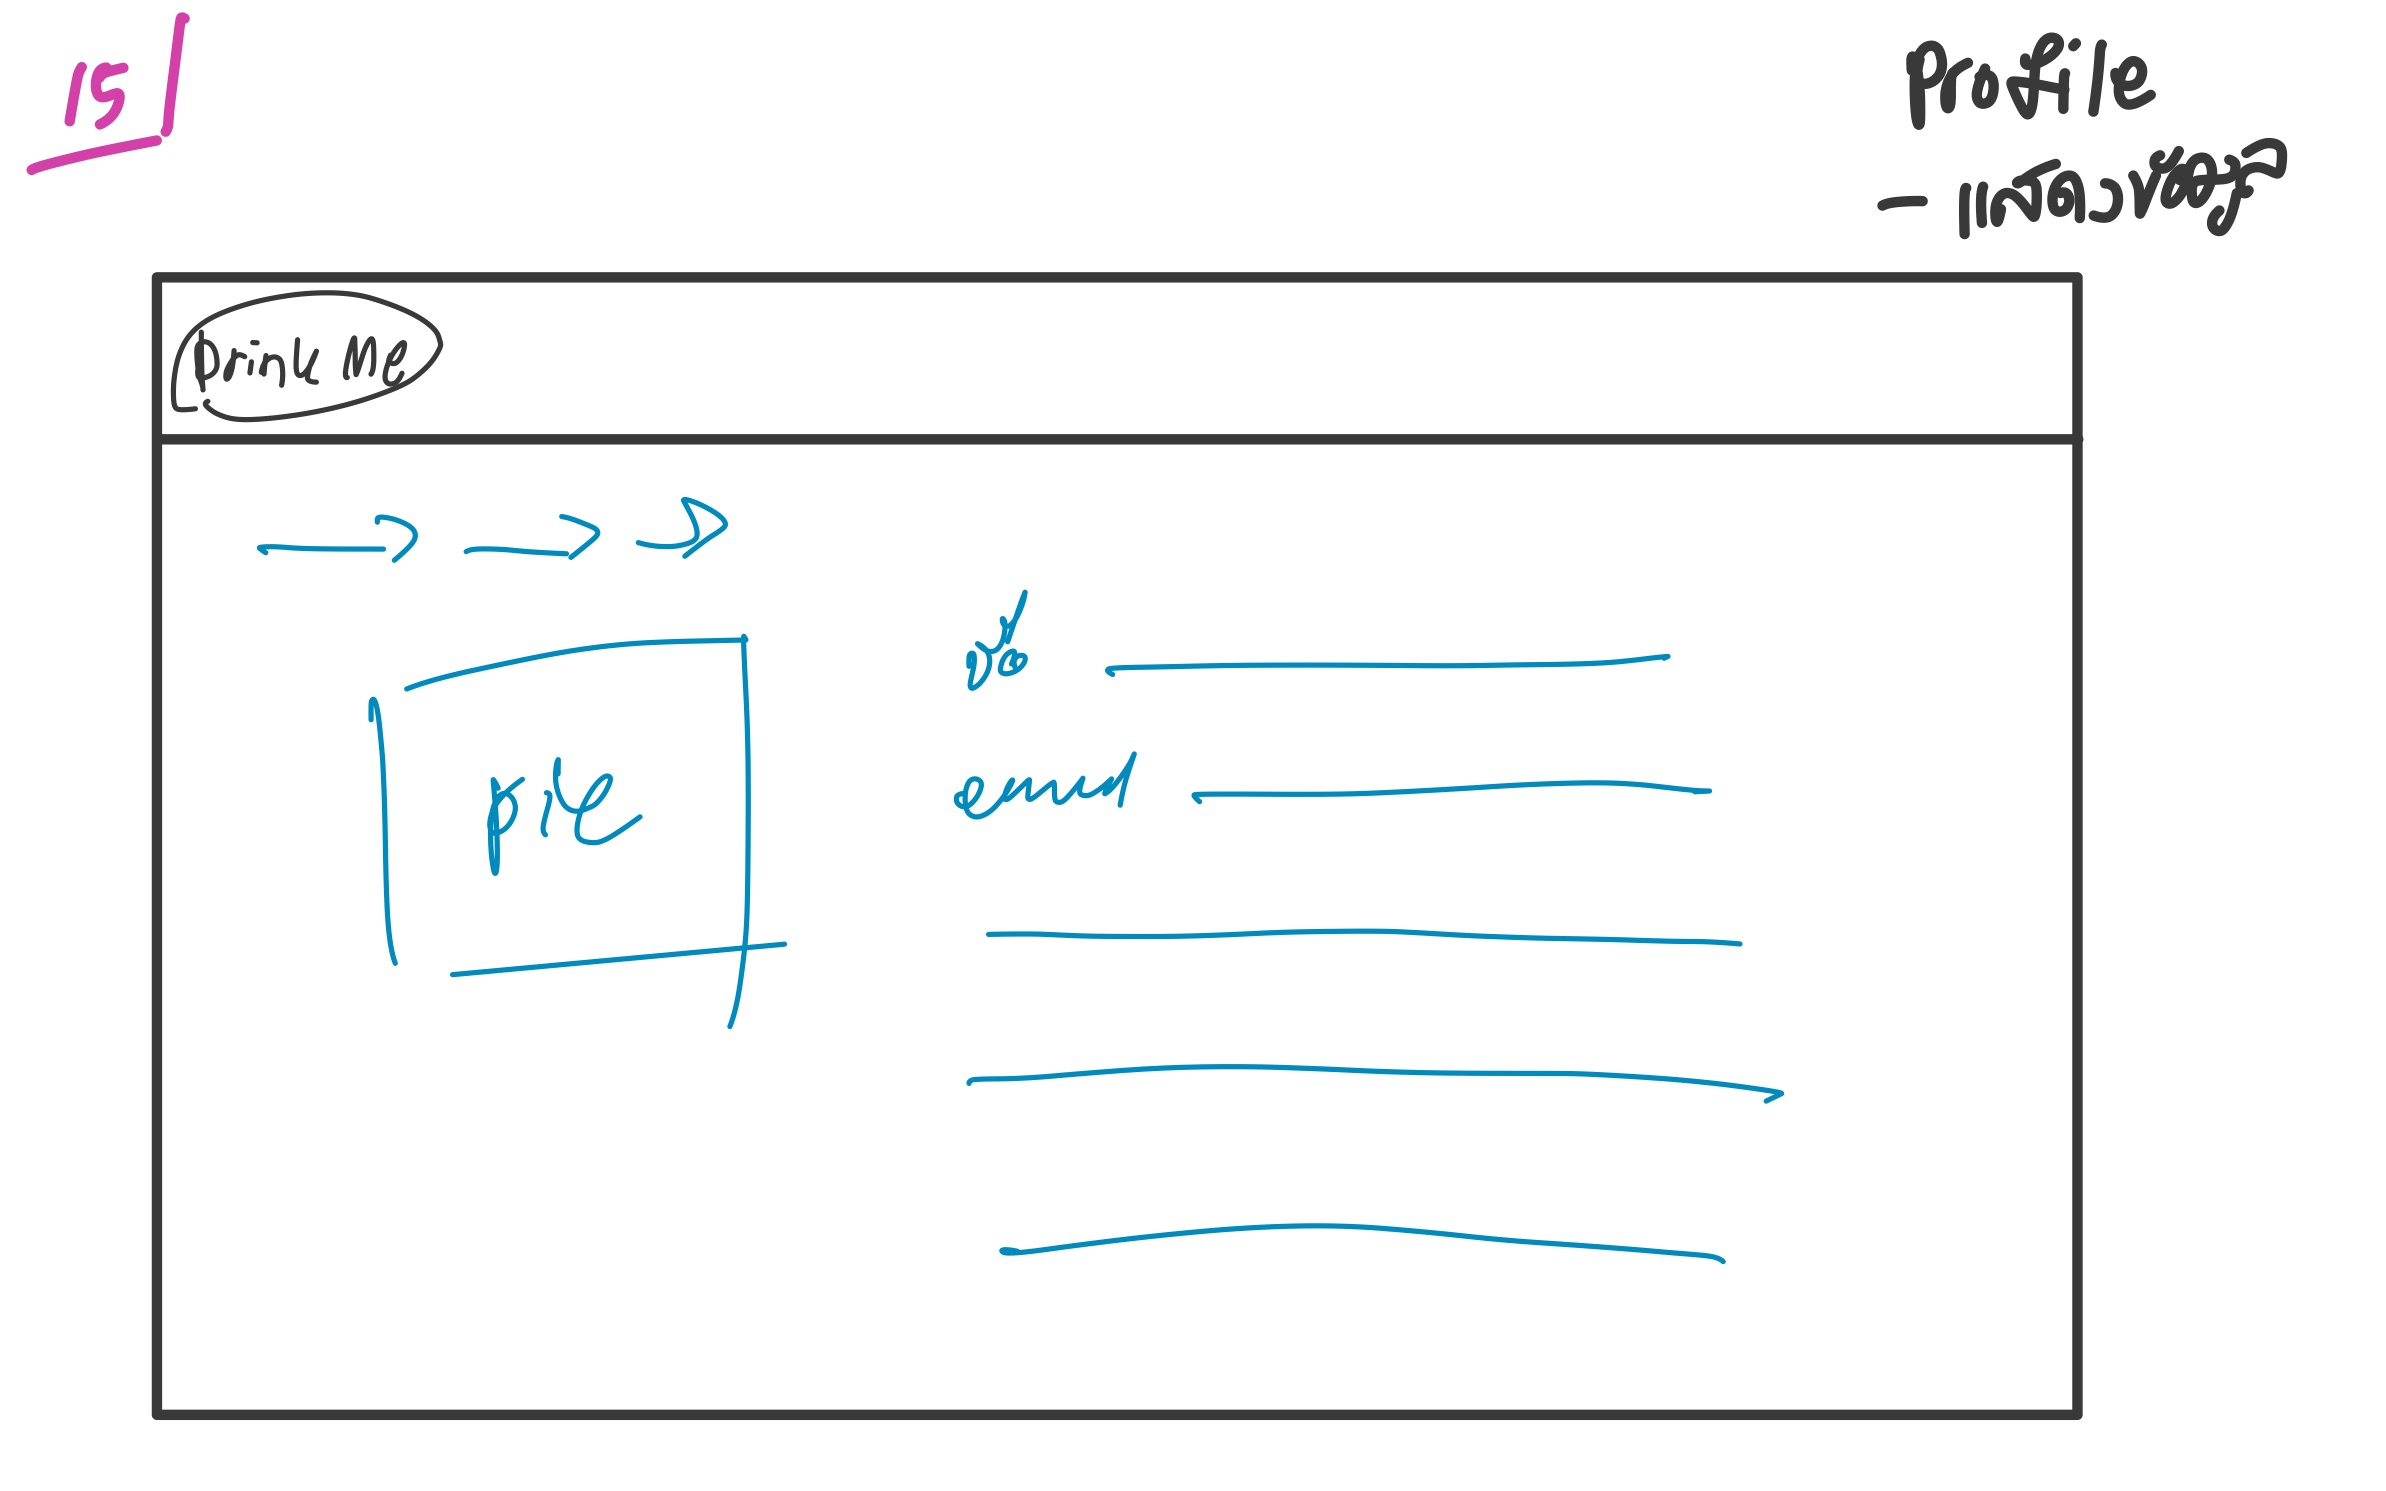 15
Profile
- แสดงข้อมูล
Drink Me
ชื่อ
email
pic